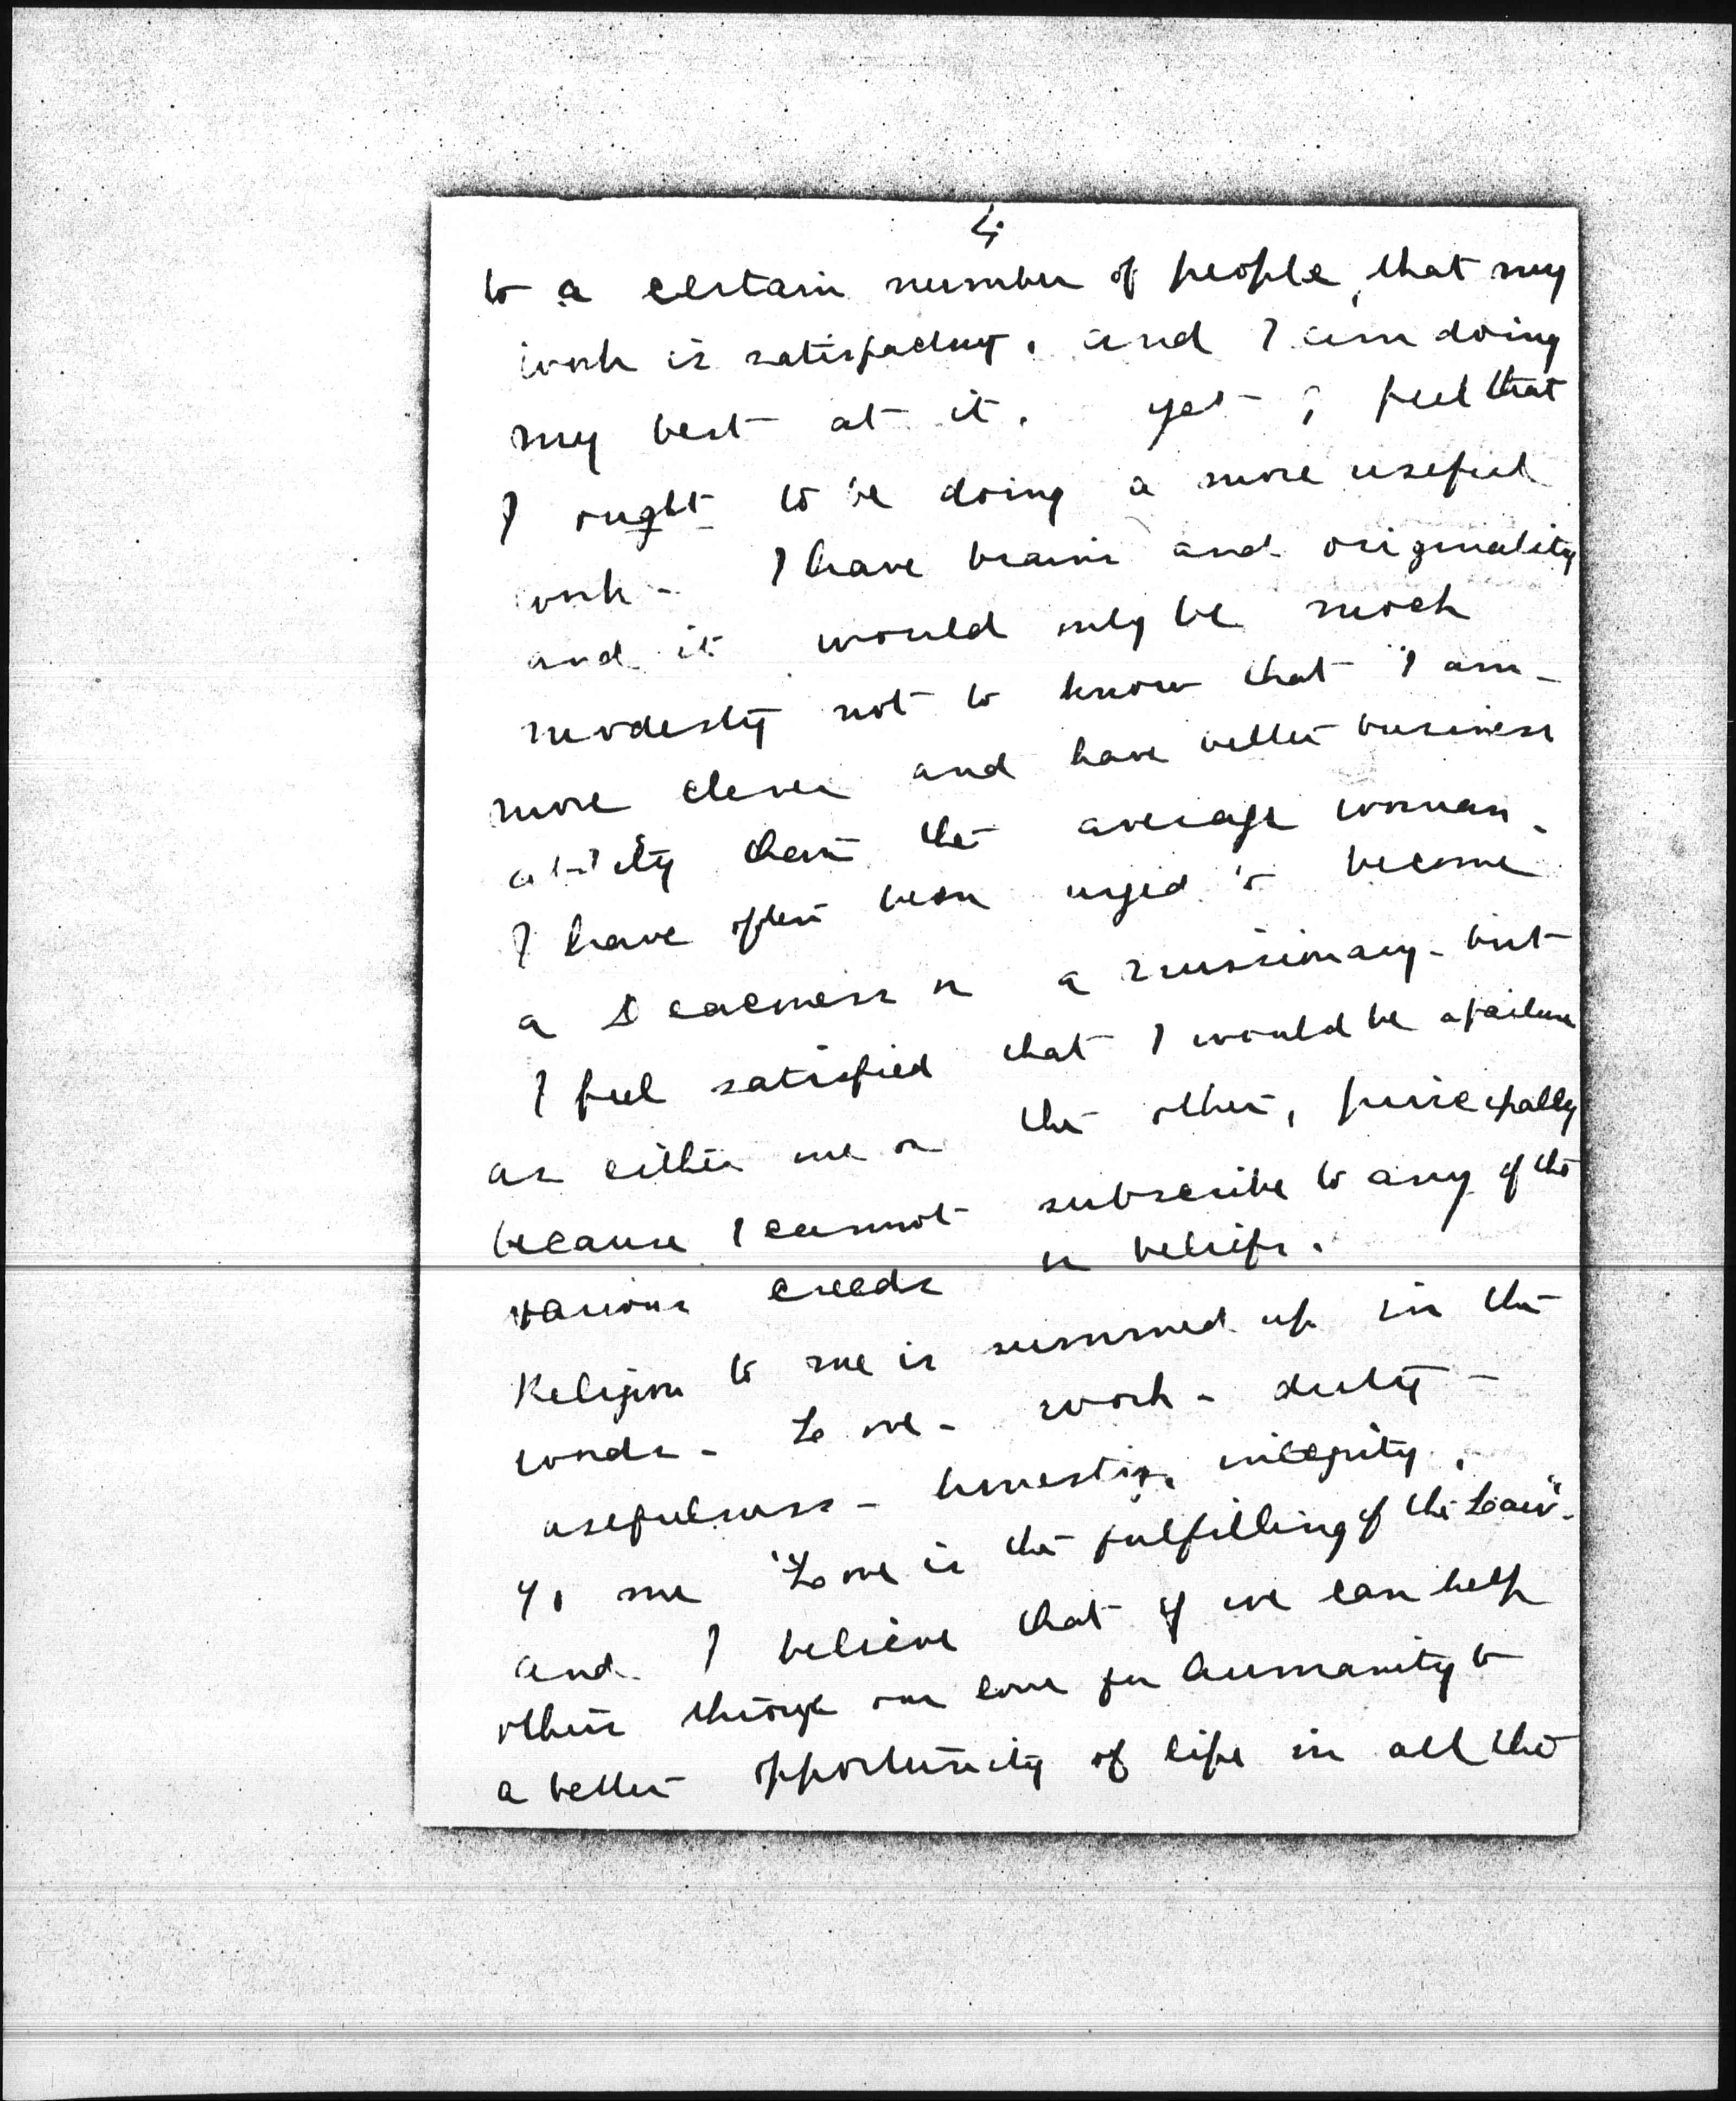 4.
to a certain number of people, that my
work is satisfactory, and I am doing
my best at it. yet I feel that
I ought to be doing a more useful
work - I have brains and originality
and it would only be mock
modesty not to know that I am -
more clever and have better business
ability than the average woman.
I have often been urged to become
a Deaconess or a missionary - but
I feel satisfied that I would be a failure
as either one or the other, principally
because I cannot subscribe to any of the
various creeds or beliefs.
Religion to me is summed up in the
words - Love - work - duty -
usefulness - honesty, integrity.
To me "Love is the fulfilling of the Law".
and I believe that if we can help
others through our love for humanity to
a better opportunity of life in all the